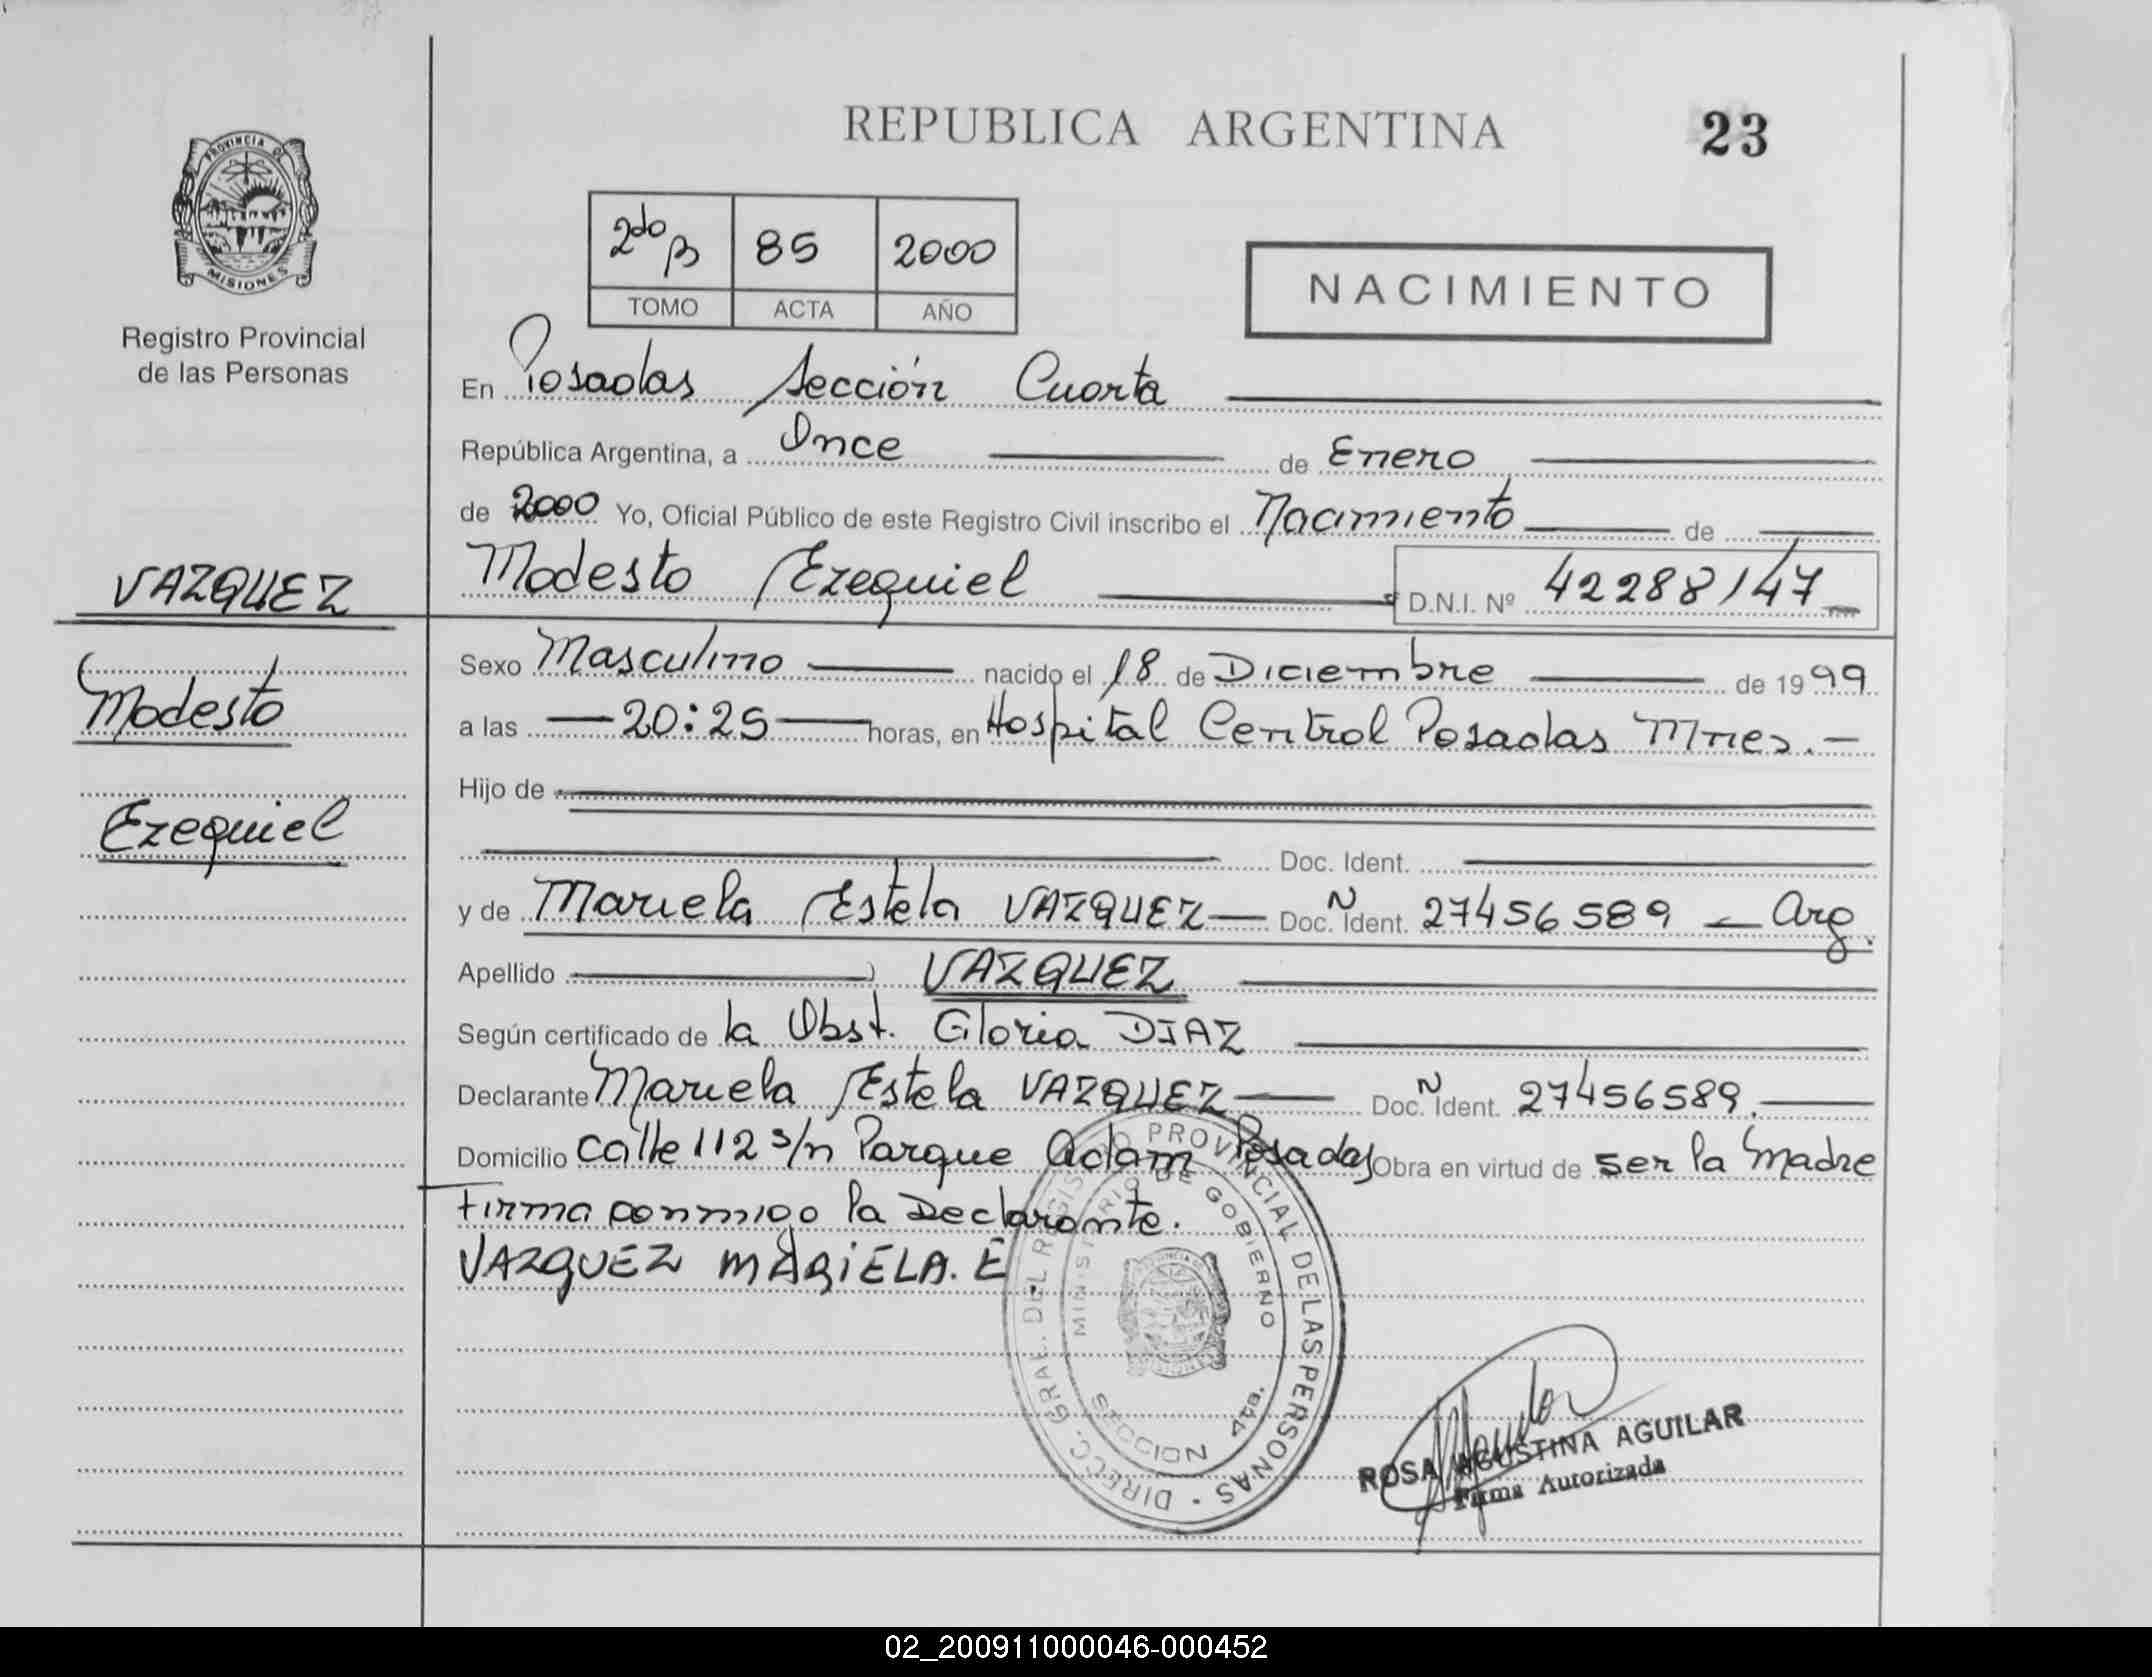 REPUBLICA ARGENTINA
23
PROVINCIA DE
MISIONES
Registro Provincial
de las Personas
2do B 85 2000
TOMO ACTA AÑO
NACIMIENTO
En Posadas Sección Cuarta
República Argentina, a Once de Enero
de 2000 Yo, Oficial Público de este Registro Civil inscribo el Nacimiento de
VAZQUEZ
Modesto Ezequiel D.N.I. Nº 42288147
Modesto
Ezequiel
Sexo Masculino nacido el 18 de Diciembre de 1999
a las 20:25 horas, en Hospital Central Posadas Mnes.
Hijo de
Doc. Ident.
y de Mariela Estela VAZQUEZ Doc. N Ident. 27456589 Arg.
Apellido VAZQUEZ
Según certificado de la Obst. Gloria DIAZ
Declarante Mariela Estela VAZQUEZ Doc. N Ident. 27456589.
Domicilio Calle 112 s/n Parque Adam Posadas Obra en virtud de ser la Madre
Firma conmigo la Declarante.
VAZQUEZ MARIELA. E
DIRECC. GRAL. DEL REGISTRO PROVINCIAL DE LAS PERSONAS
MINISTERIO DE GOBIERNO
SECCION 4ta.
ROSA AGUSTINA AGUILAR
Firma Autorizada
02_200911000046-000452